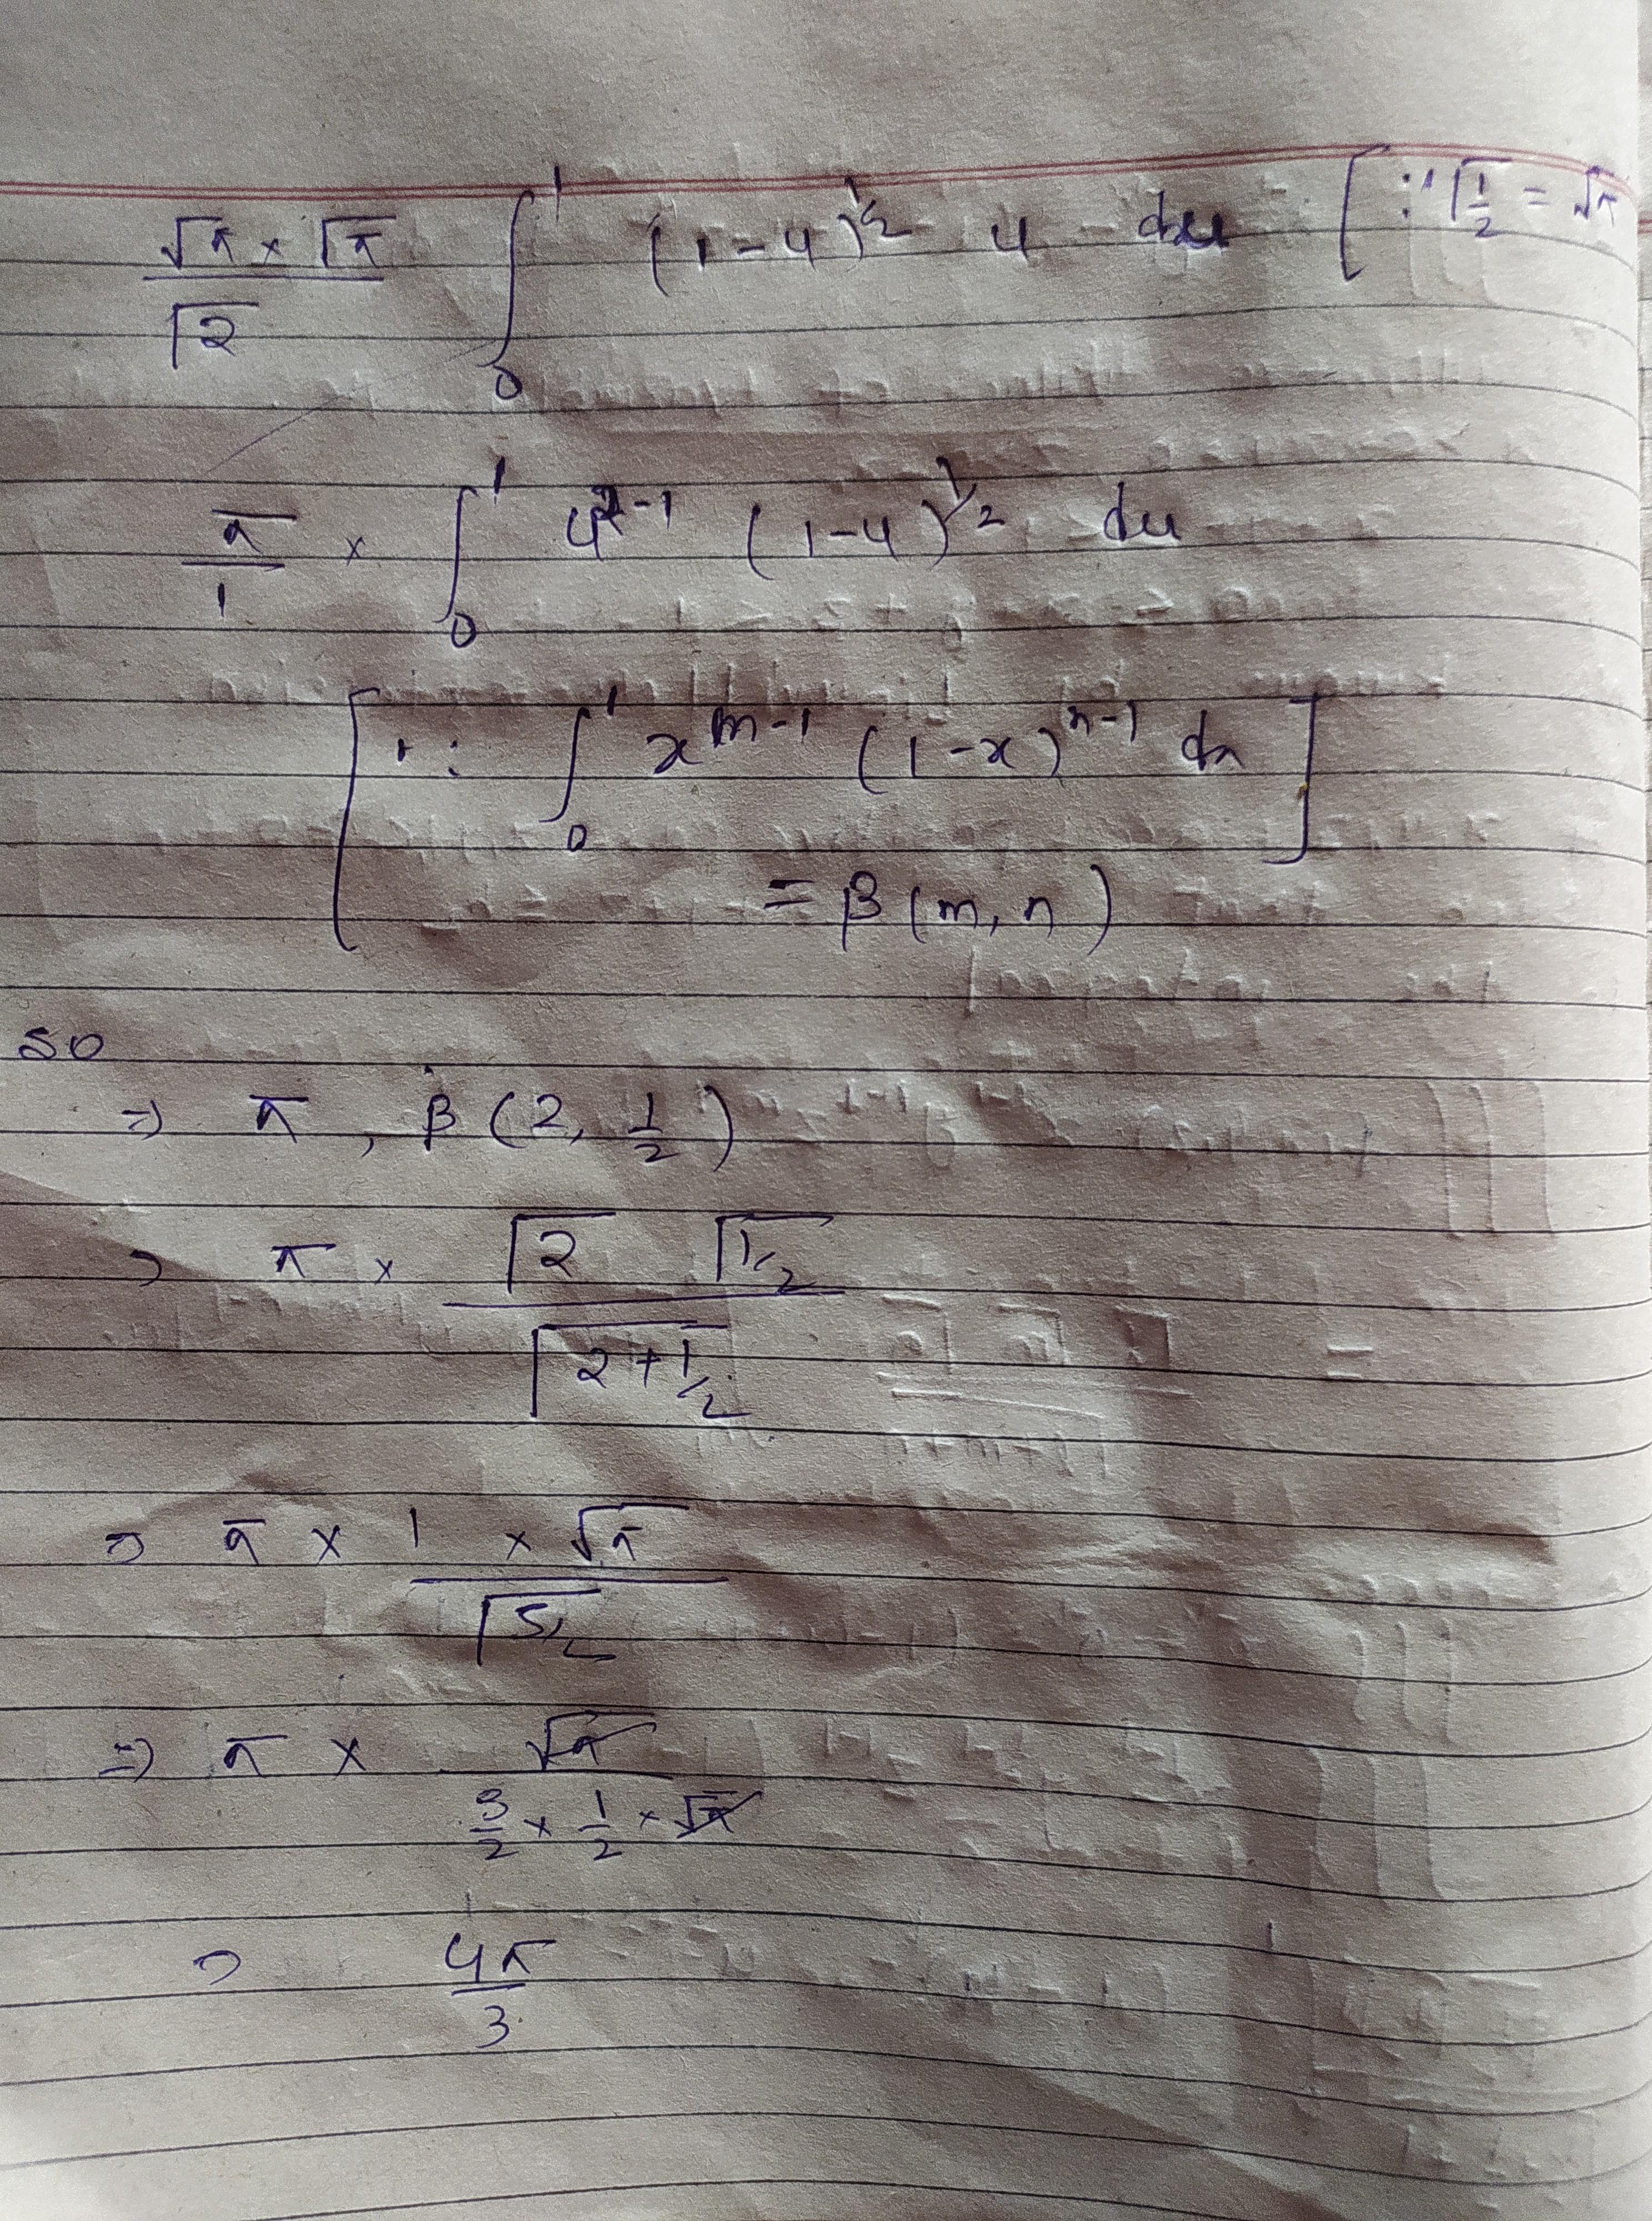 √π × √π / √2 ∫₀¹ (1-u)^1/2 u du [∵ Γ1/2 = √π
π/1 × ∫₀¹ u^2-1 (1-u)^1/2 du
[∵ ∫₀¹ x^m-1 (1-x)^n-1 dx]
= β(m, n)
so
⇒ π, β(2, 1/2)
⇒ π × Γ2 Γ1/2 / Γ2+1/2
⇒ π × 1 × √π / Γ5/2
⇒ π × √π / 3/2 × 1/2 × √π
⇒ 4π/3